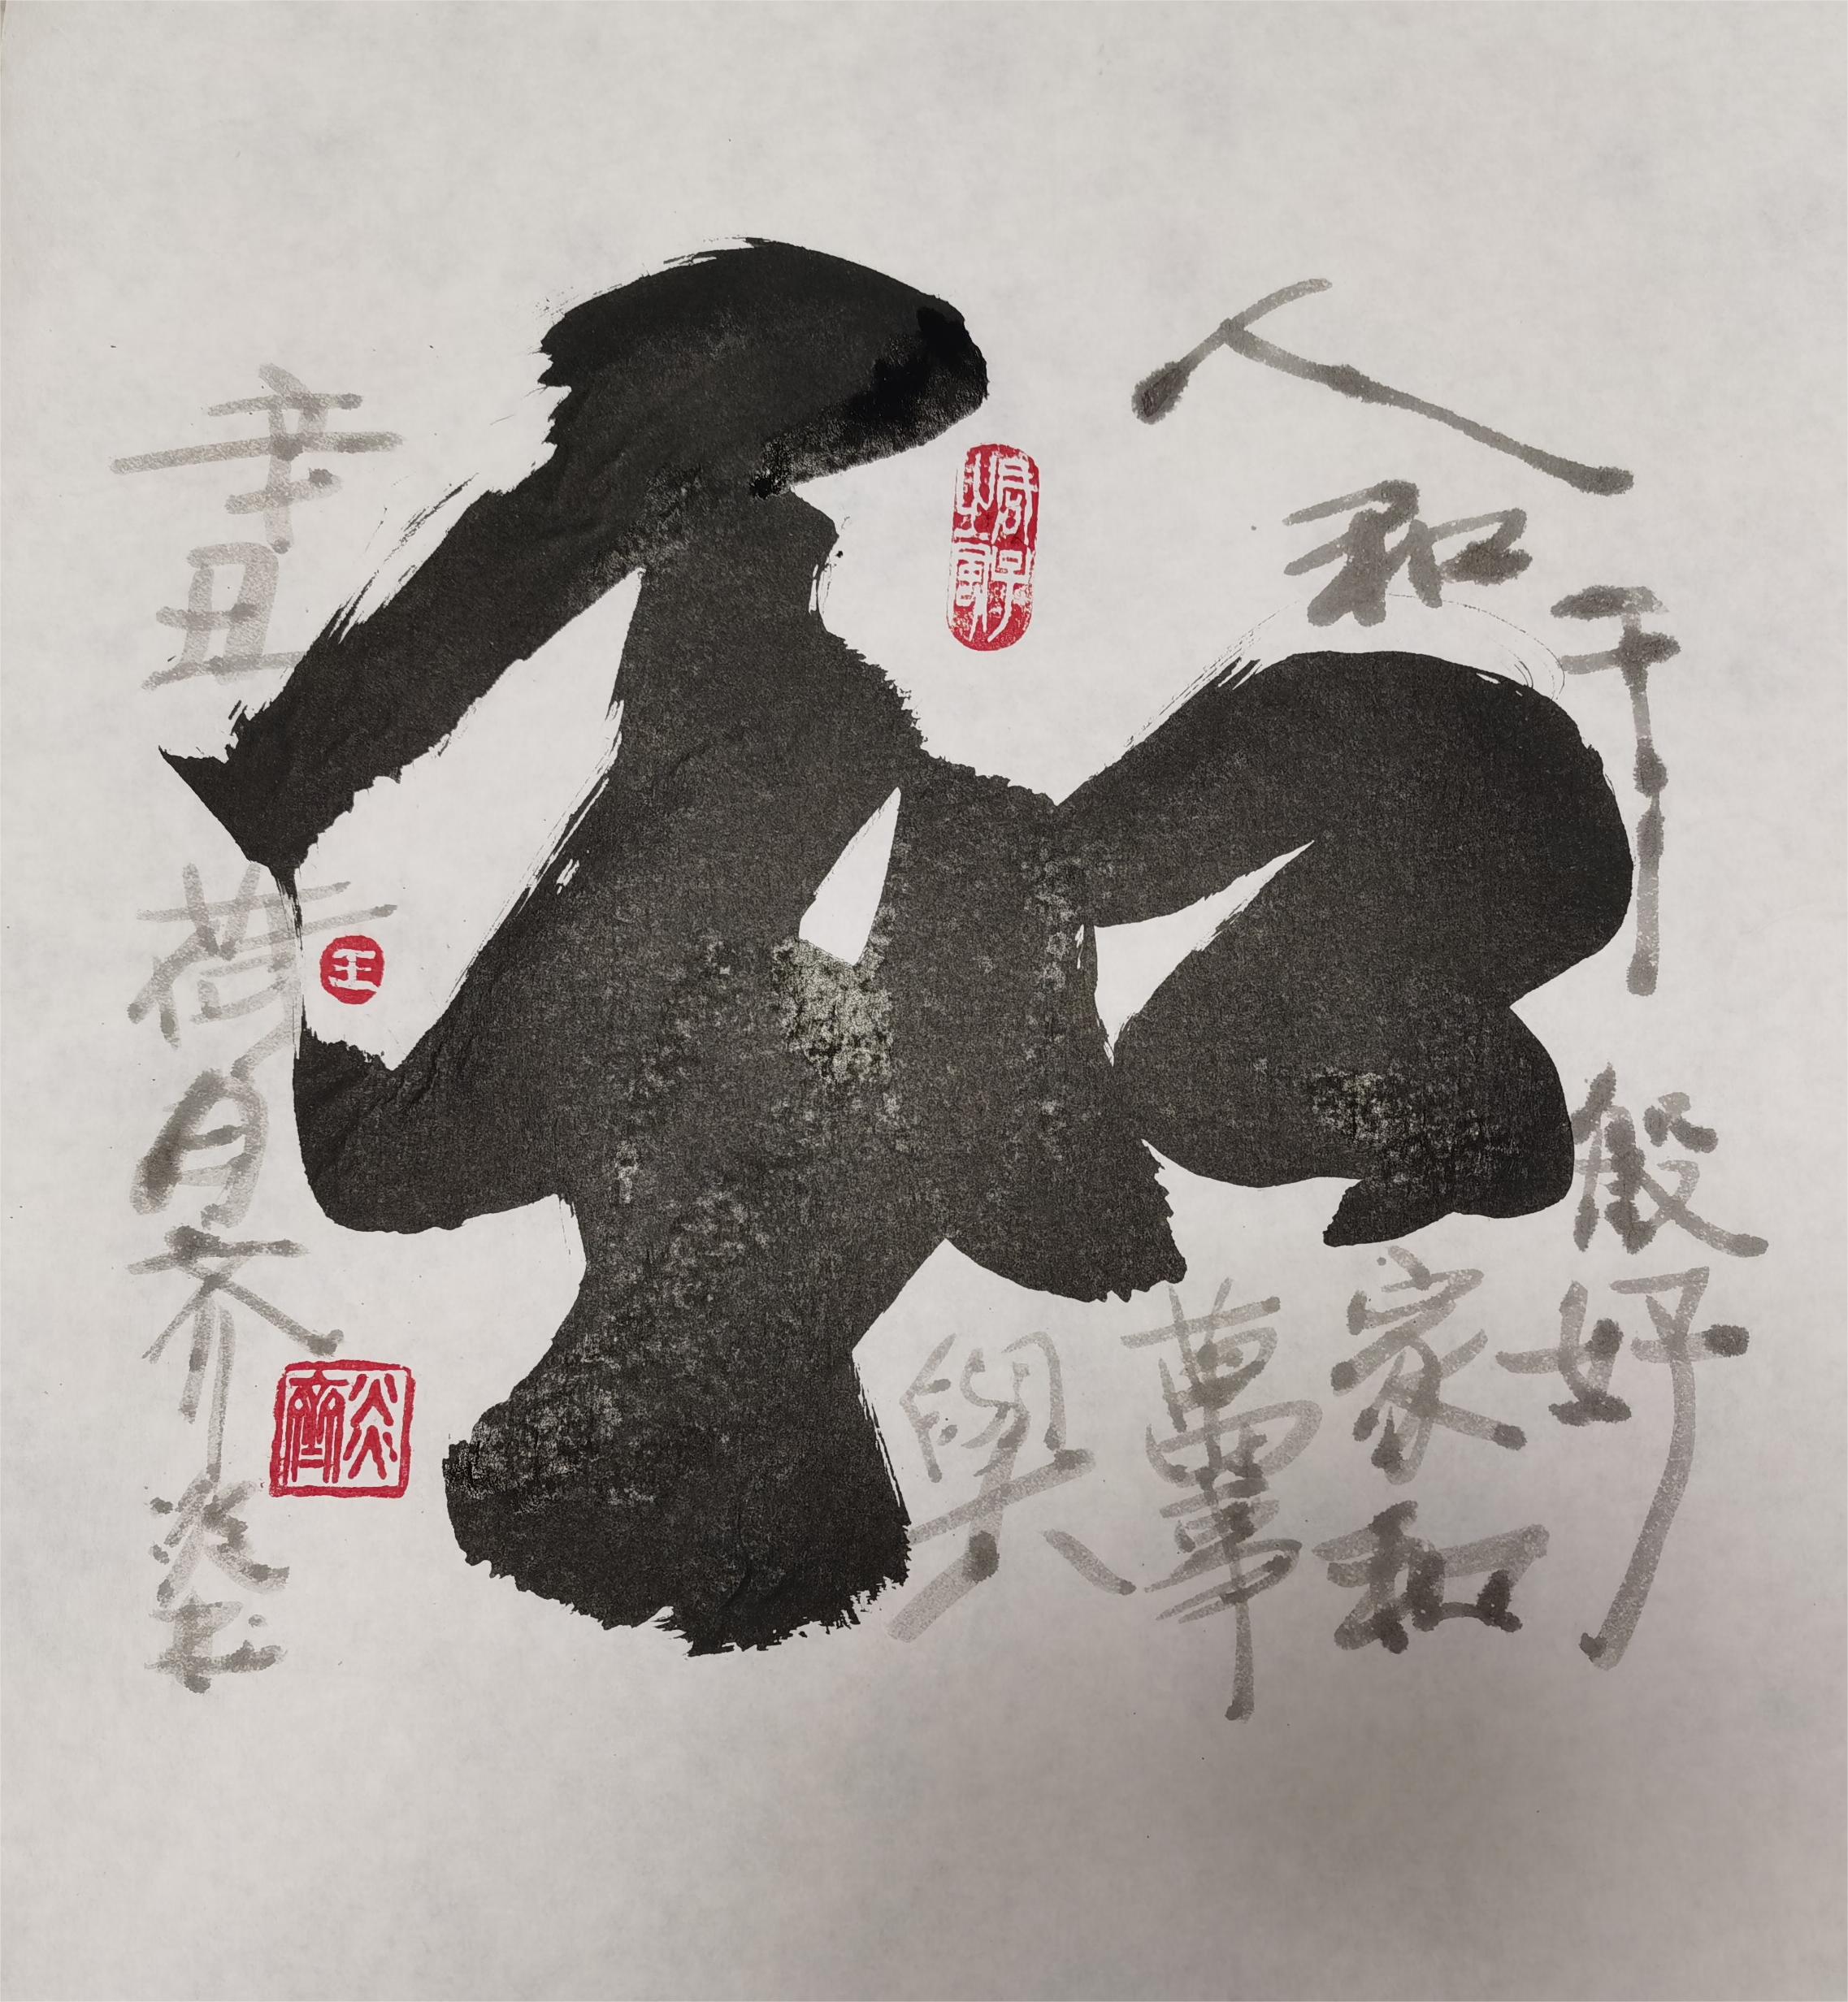 和
人和
千般好
家和
萬事
興
辛丑荷月齐炎书
王
炎齊